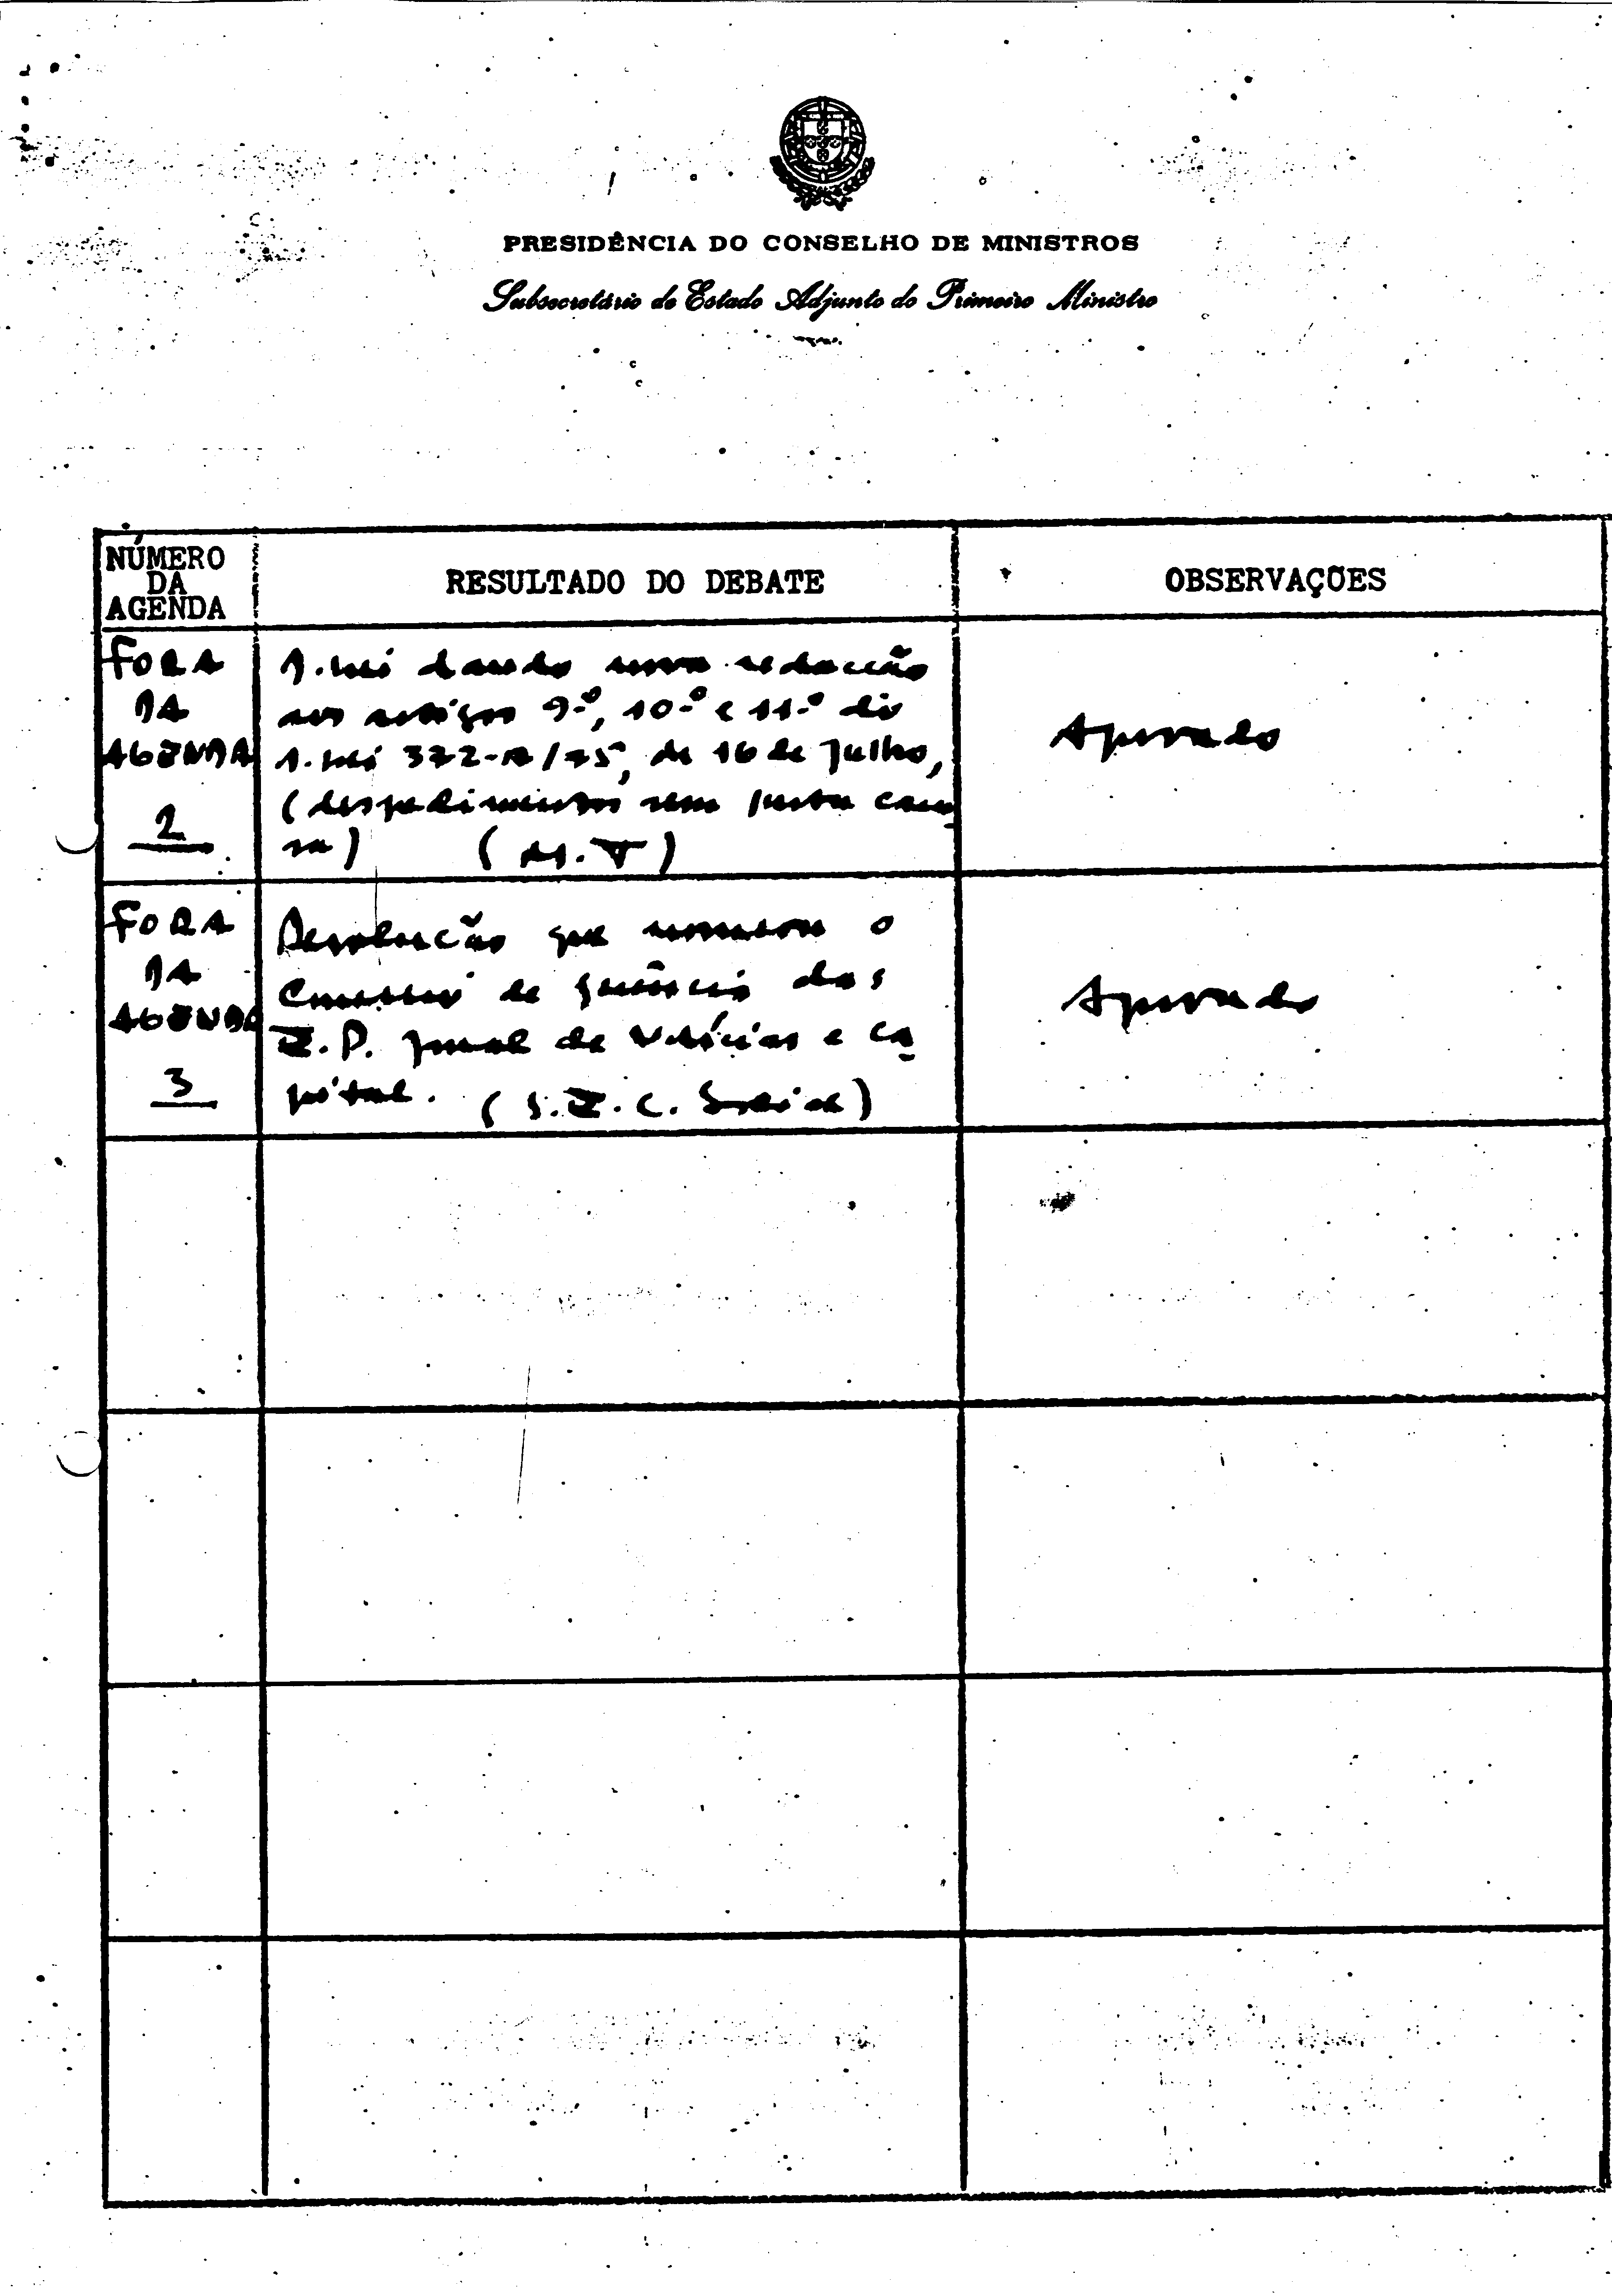 PRESIDÊNCIA DO CONSELHO DE MINISTROS
Subsecretário de Estado Adjunto do Primeiro Ministro
NÚMERO
DA
AGENDA
RESULTADO DO DEBATE
OBSERVAÇÕES
FORA
DA
AGENDA
2
D. Lei dando nova redacção
aos artigos 9.º, 10.º e 11.º do
D. Lei 372-A/75, de 16 de Julho,
(despedimentos sem justa cau
sa) (M. T)
Aprovado
FORA
DA
AGENDA
3
Resolução que nomeou o
de gerência das
E.P. Jornal de Notícias e Ca
pital. (S.E.C. Social)
Aprovado